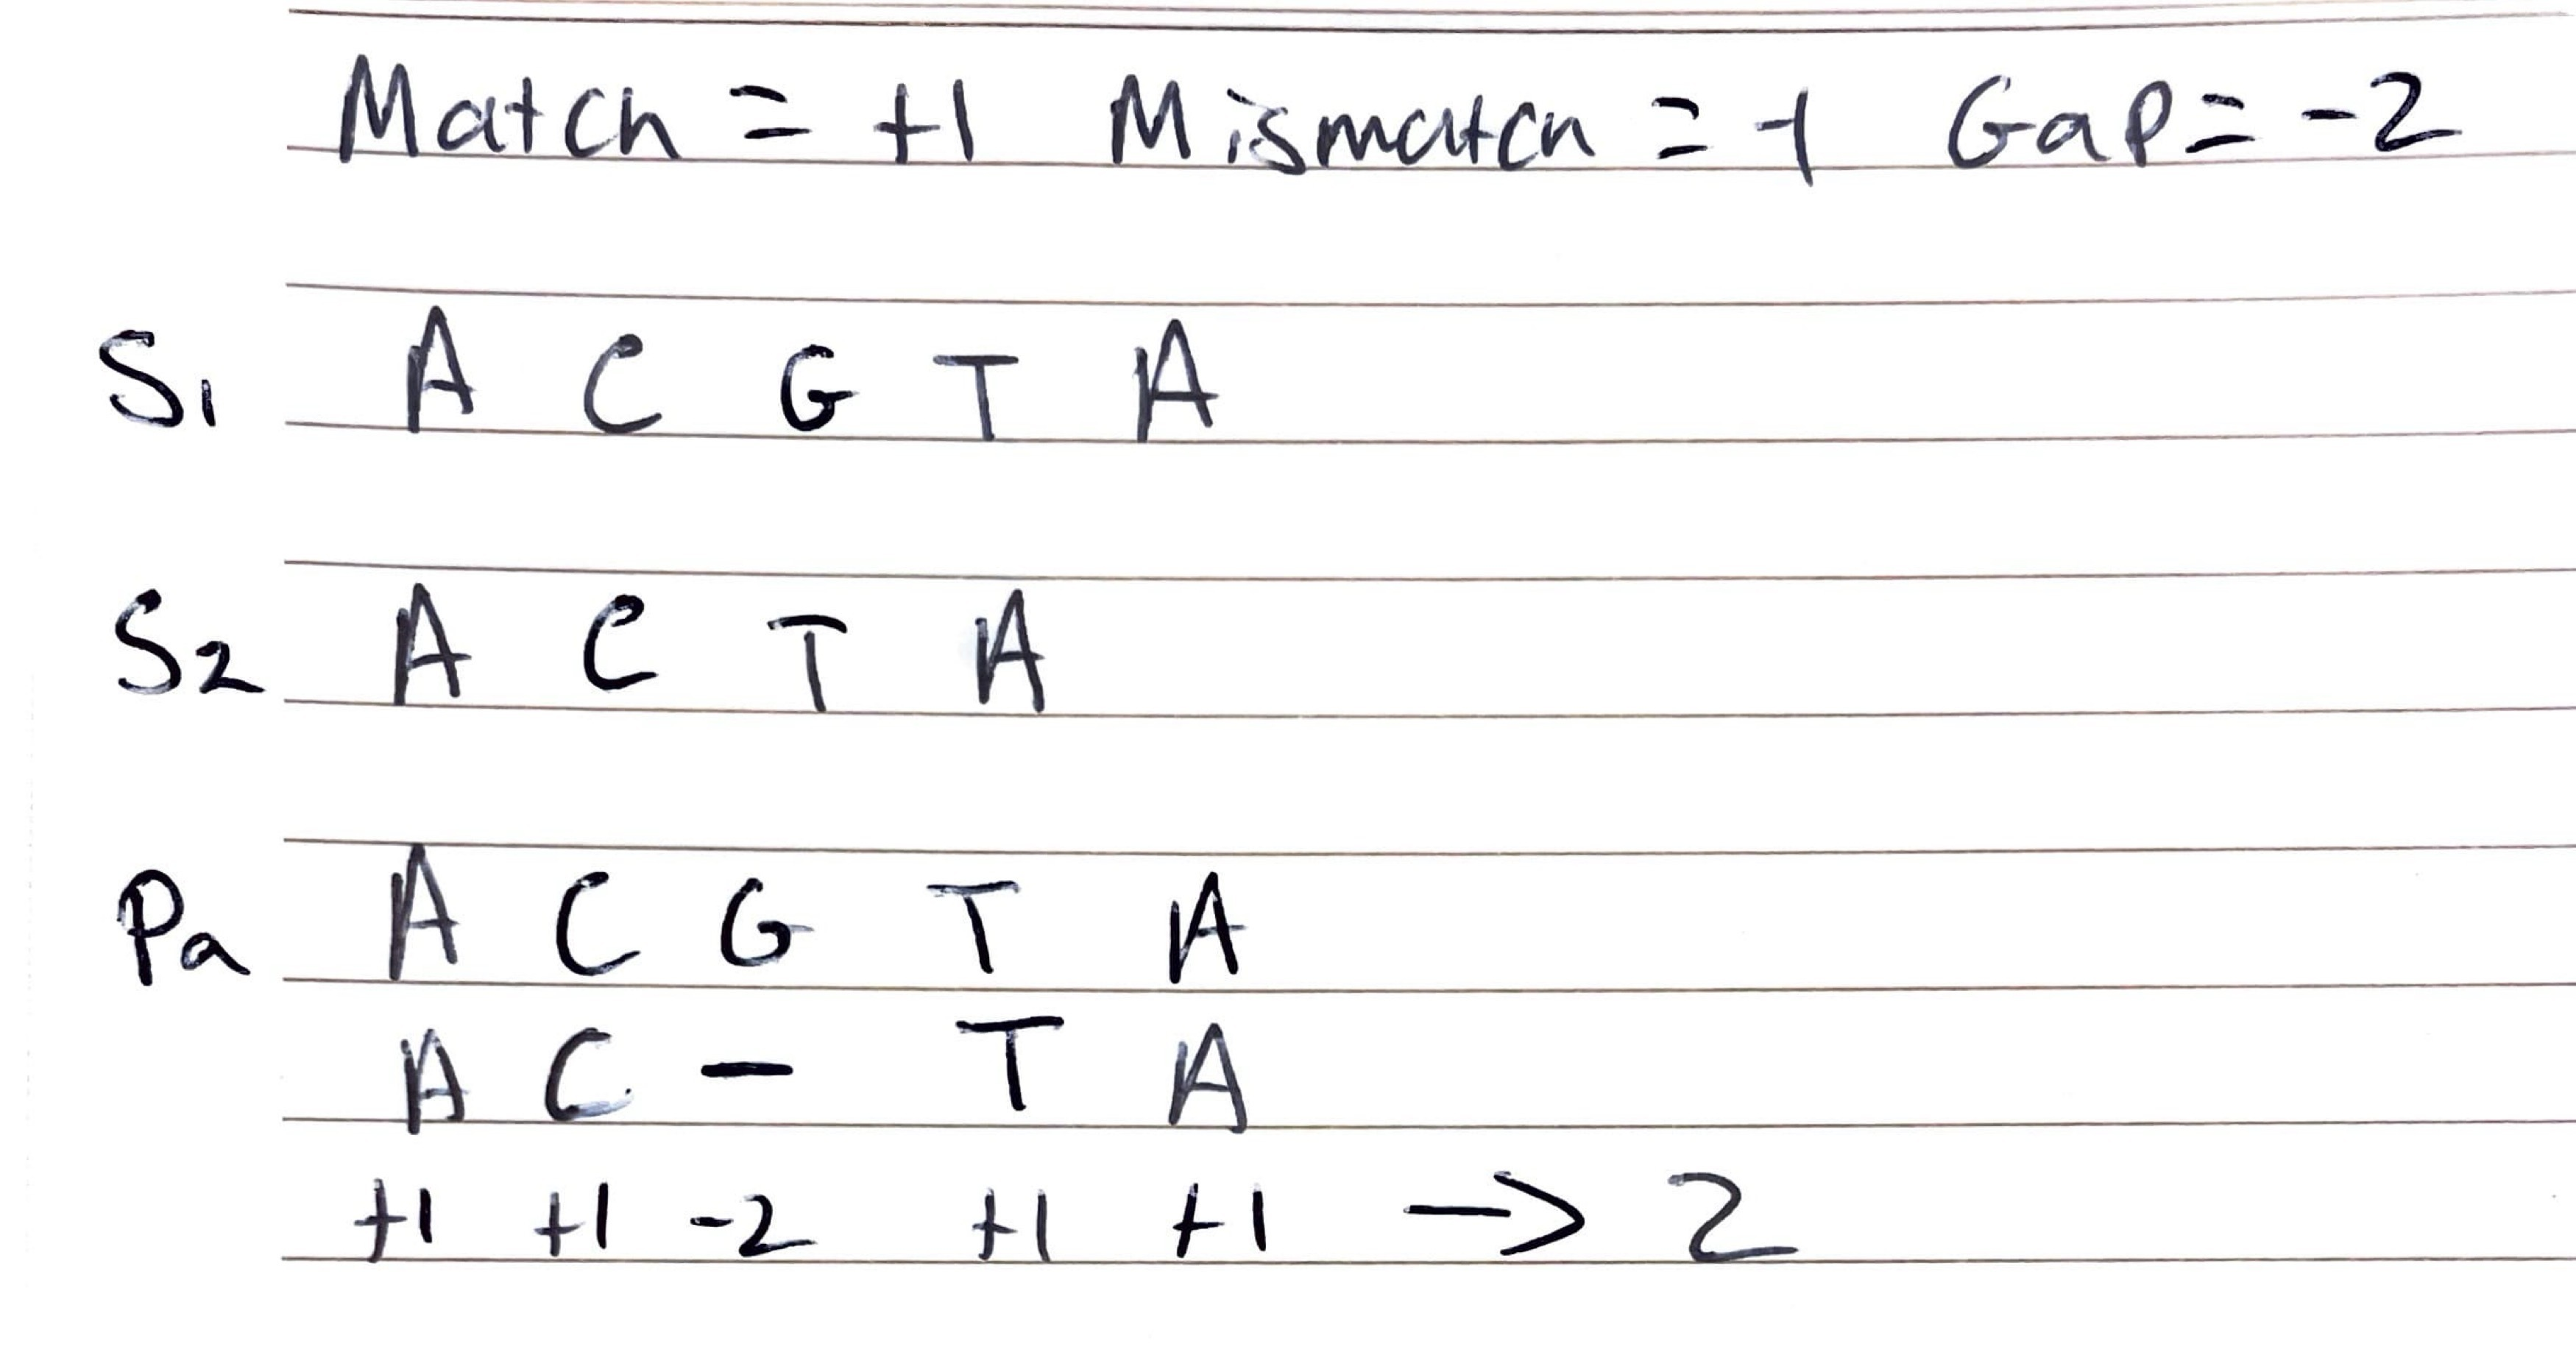 Match = +1 Mismatch = -1 Gap = -2
S1 A C G T A
S2 A C T A
Pa A C G T A
A C - T A
+1 +1 -2 +1 +1 -> 2